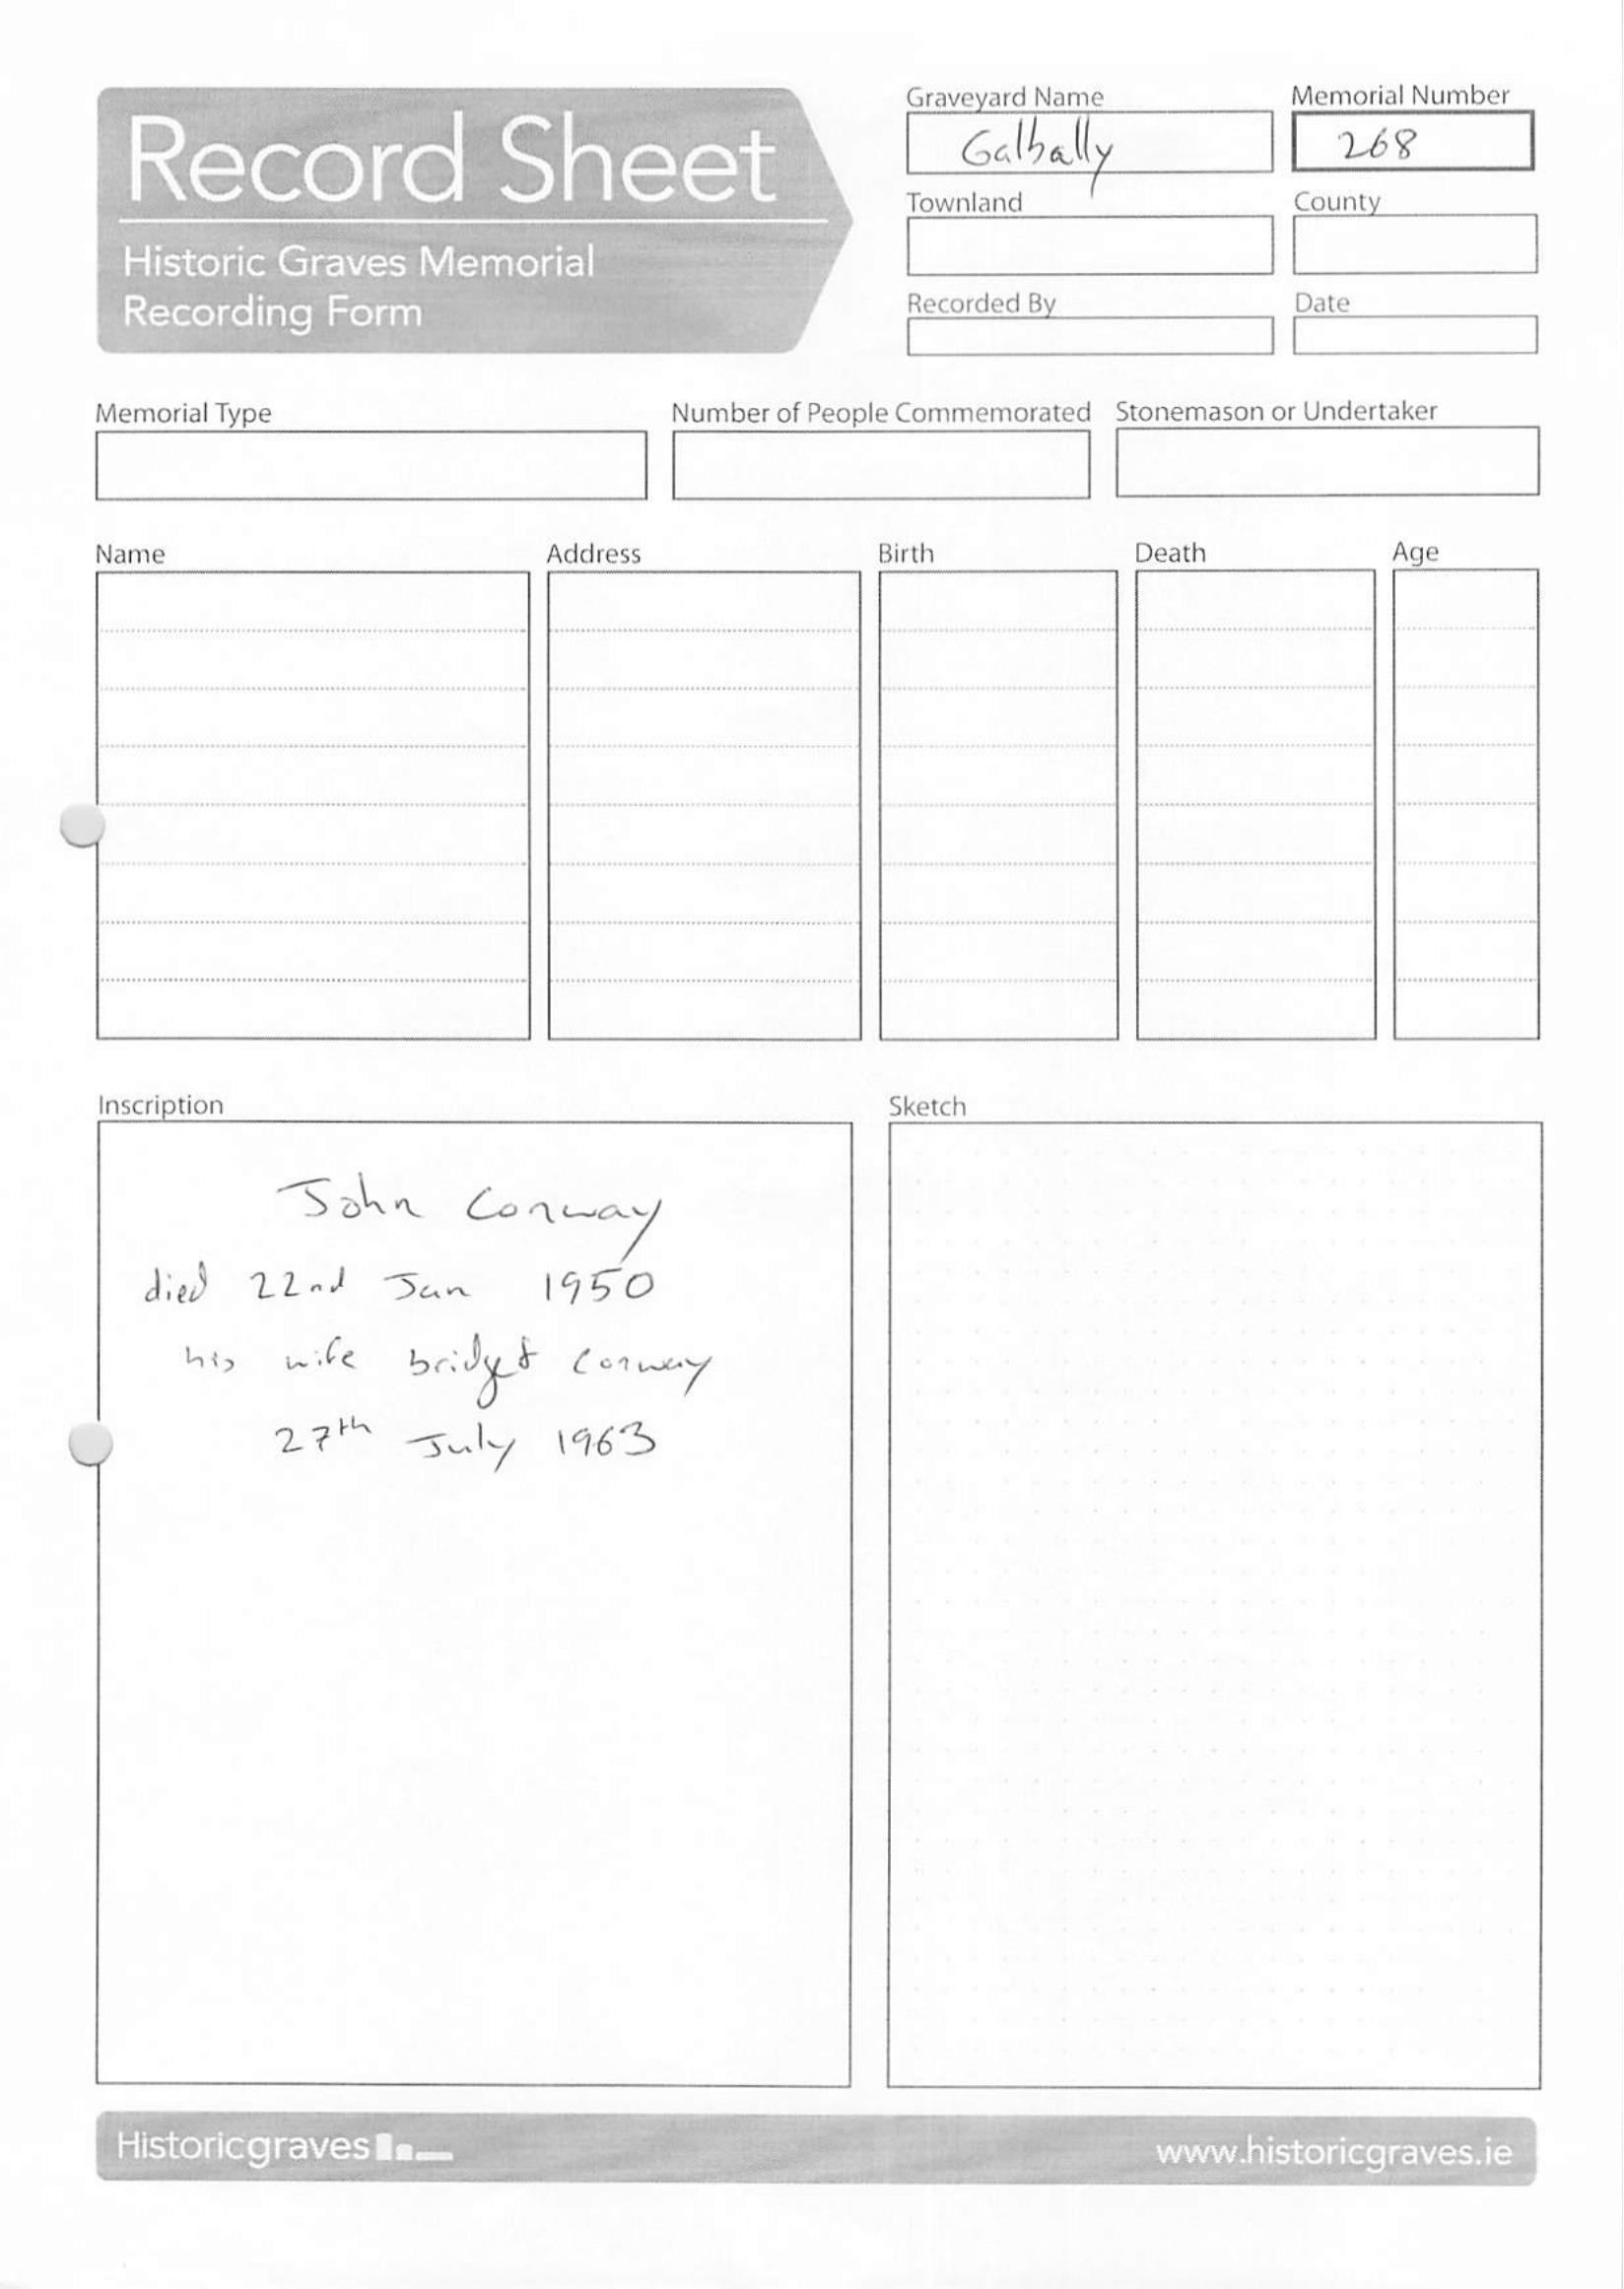 Record Sheet
Historic Graves Memorial
Recording Form
Graveyard Name
Galbally
Memorial Number
268
Townland
County
Recorded By
Date
Memorial Type
Number of People Commemorated
Stonemason or Undertaker
Name
Address
Birth
Death
Age
Inscription
John Conway
died 22nd Jan 1950
his wife bridget Conway
27th July 1963
Sketch
Historicgraves
www.historicgraves.ie